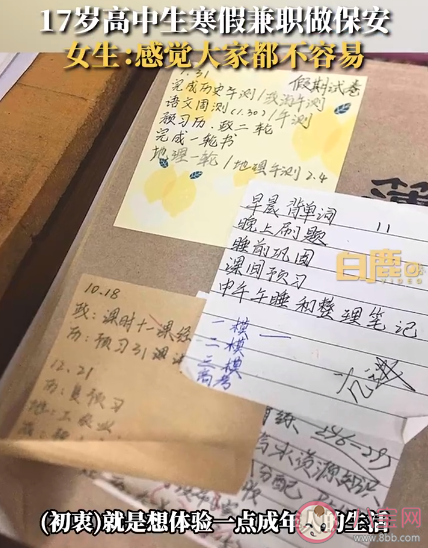 17岁高中生寒假兼职做保安
女生:感觉大家都不容易
1.31
假期试卷
完成历史午测/政治午测
语文周测(1.30)/午测
预习历、政二轮
完成一轮书
地理一轮/地理午测2.4
早晨背单词
晚上刷题
睡前巩固
课间预习
中午午睡和整理笔记
一模
二模
三模
高考
白鹿
VIDEO
10.18
政:课时十一课
历:预习31课
12.21
历:复预习
地:工农业
水资源
分配
(初衷)就是想体验一点成年人的生活
www.8bb.com